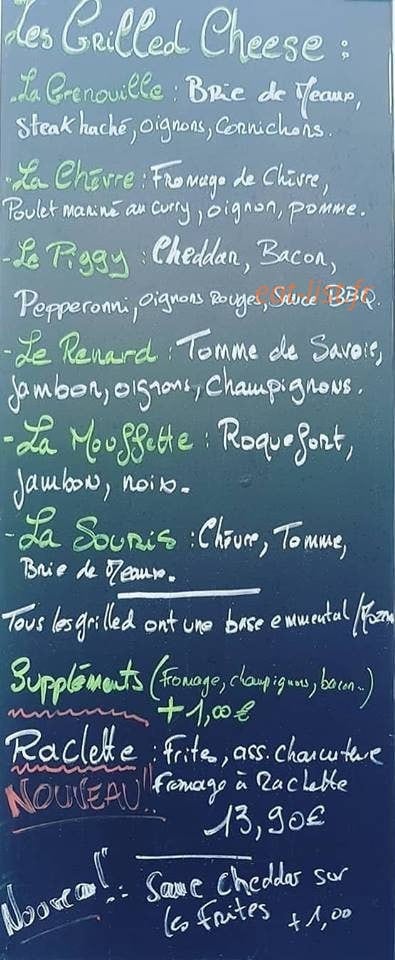 Les Grilled Cheese :
- La Grenouille : Brie de Meaux,
Steak haché, oignons, Cornichons.
- La Chèvre : Fromage de Chèvre,
Poulet mariné au curry, oignon, pomme.
- Le Piggy : Cheddar, Bacon,
Pepperonni, oignons Rouges, Sauce BBQ.
eat-list.fr
- Le Renard : Tomme de Savoie,
Jambon, oignons, Champignons.
- La Mouffette : Roquefort,
Jambon, noix.
- La Souris : Chèvre, Tomme,
Brie de Meaux.
Tous les grilled ont une base emmental /
Suppléments (fromage, champignons, bacon..)
+ 1,00€
Raclette : frites, ass. charcuterie
NOUVEAU!! fromage à Raclette
13,90€
Nouveau! : Sauce cheddar sur
les frites + 1,00